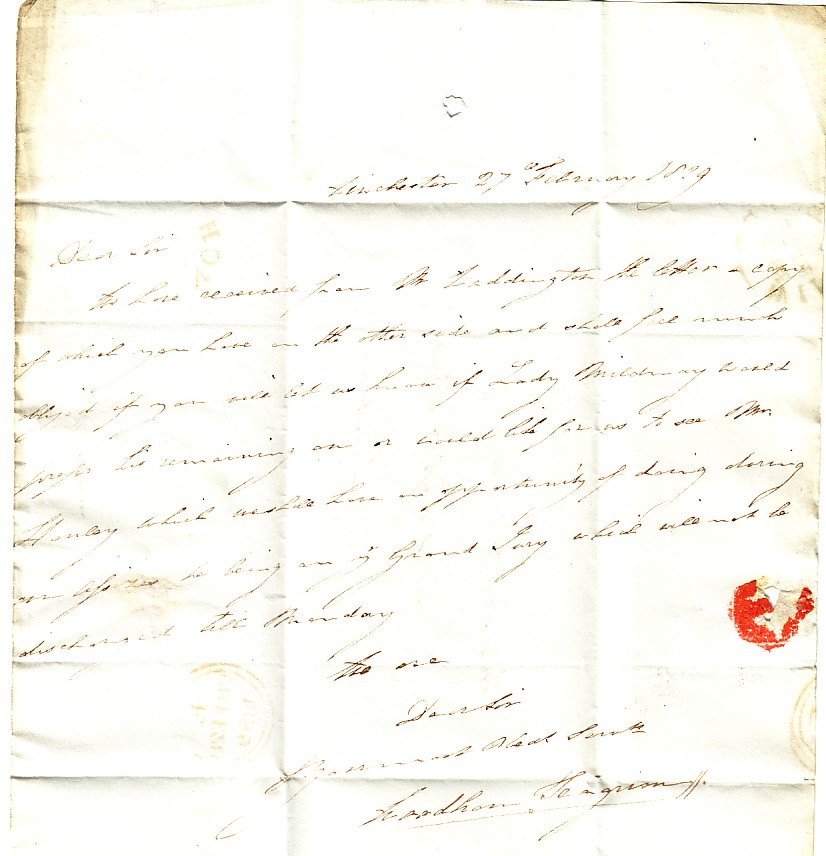 Winchester 27th February 1839
Dear Sir
We have received from Mr Waddington the letter a copy
of which you have on the other side and shall feel much
obliged if you will let us know if Lady Mildmay would
prefer his remaining on or would like for us to see Mr
Hanley which we shall have an opportunity of doing during
our Assizes he being on ye Grand Jury which will not be
discharged till Monday
We are
Dear Sir
Your most Obedt Servts
Woodham Seagrim